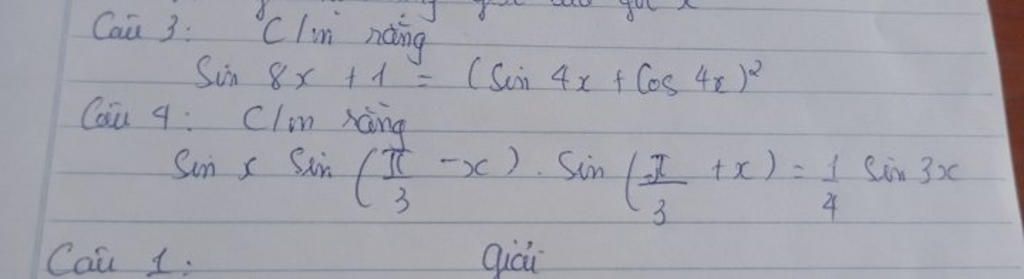 Câu 3: C/m rằng
Sin 8x + 1 = (Sin 4x + Cos 4x)²
Câu 4: C/m rằng
Sin x Sin (π/3 - x) . Sin (π/3 + x) = 1/4 Sin 3x
Câu 1: Giải